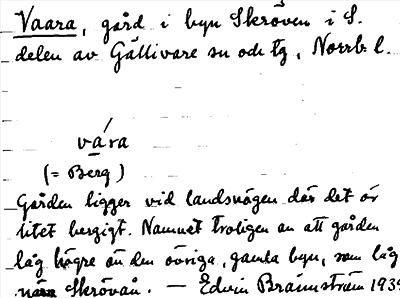 Vaara, gård i byn Skröven i S.
delen av Gällivare sn och tg, Norrb. l.
vára
(= Berg)
Gården ligger vid landsvägen där det är
litet bergigt. Namnet troligen av att gården
låg högre än den övriga, gamla byn, som låg
nära Skrövån. — Edvin Brännström 1939